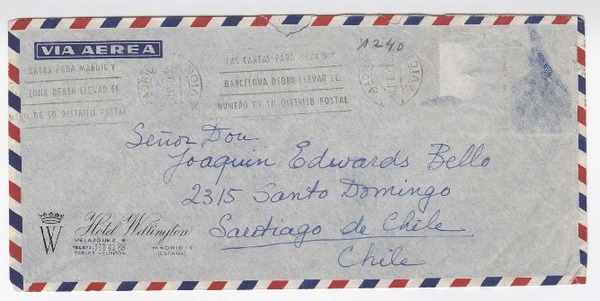 VIA AEREA
CARTAS PARA MADRID Y
LONA DEBEN LLEVAR EL
O DE SU DISTRITO POSTAL
LAS CARTAS PARA MADRID Y
BARCELONA DEBEN LLEVAR EL
NUMERO DE SU DISTRITO POSTAL
Señor Don
Joaquin Edwards Bello
2315 Santo Domingo
Santiago de Chile
Chile
W
Hotel Wellington
VELAZQUEZ, 8
MADRID-1
(ESPAÑA)
CABLES: VELINTON